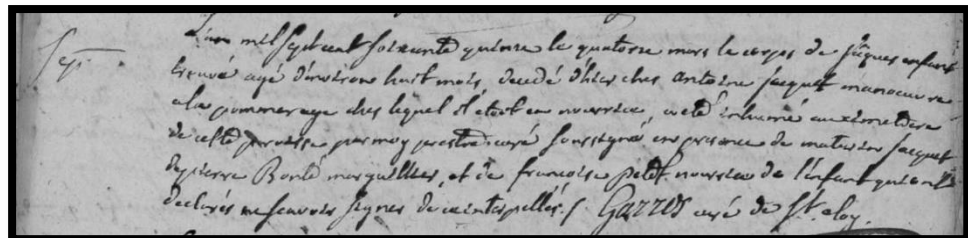 L'an mil sept cent soixante quinze le quatorze mars le corps de jâques enfant
Sep trouvé agé d'environ huit mois, decedé d'hier ches antoine jacquet manoeuvre
a la pommeraye ches lequel il étoit en nourrice, a eté inhumé au cimetiere
de cette paroisse par moy prestre curé soussigné, en presence de maturin jacquet
de pierre Bonté marguillier, et de francoise petit nourrice de l'enfant qui ont
declarés ne scavoir signer de ce interpellés. Garros curé de St. eloy.